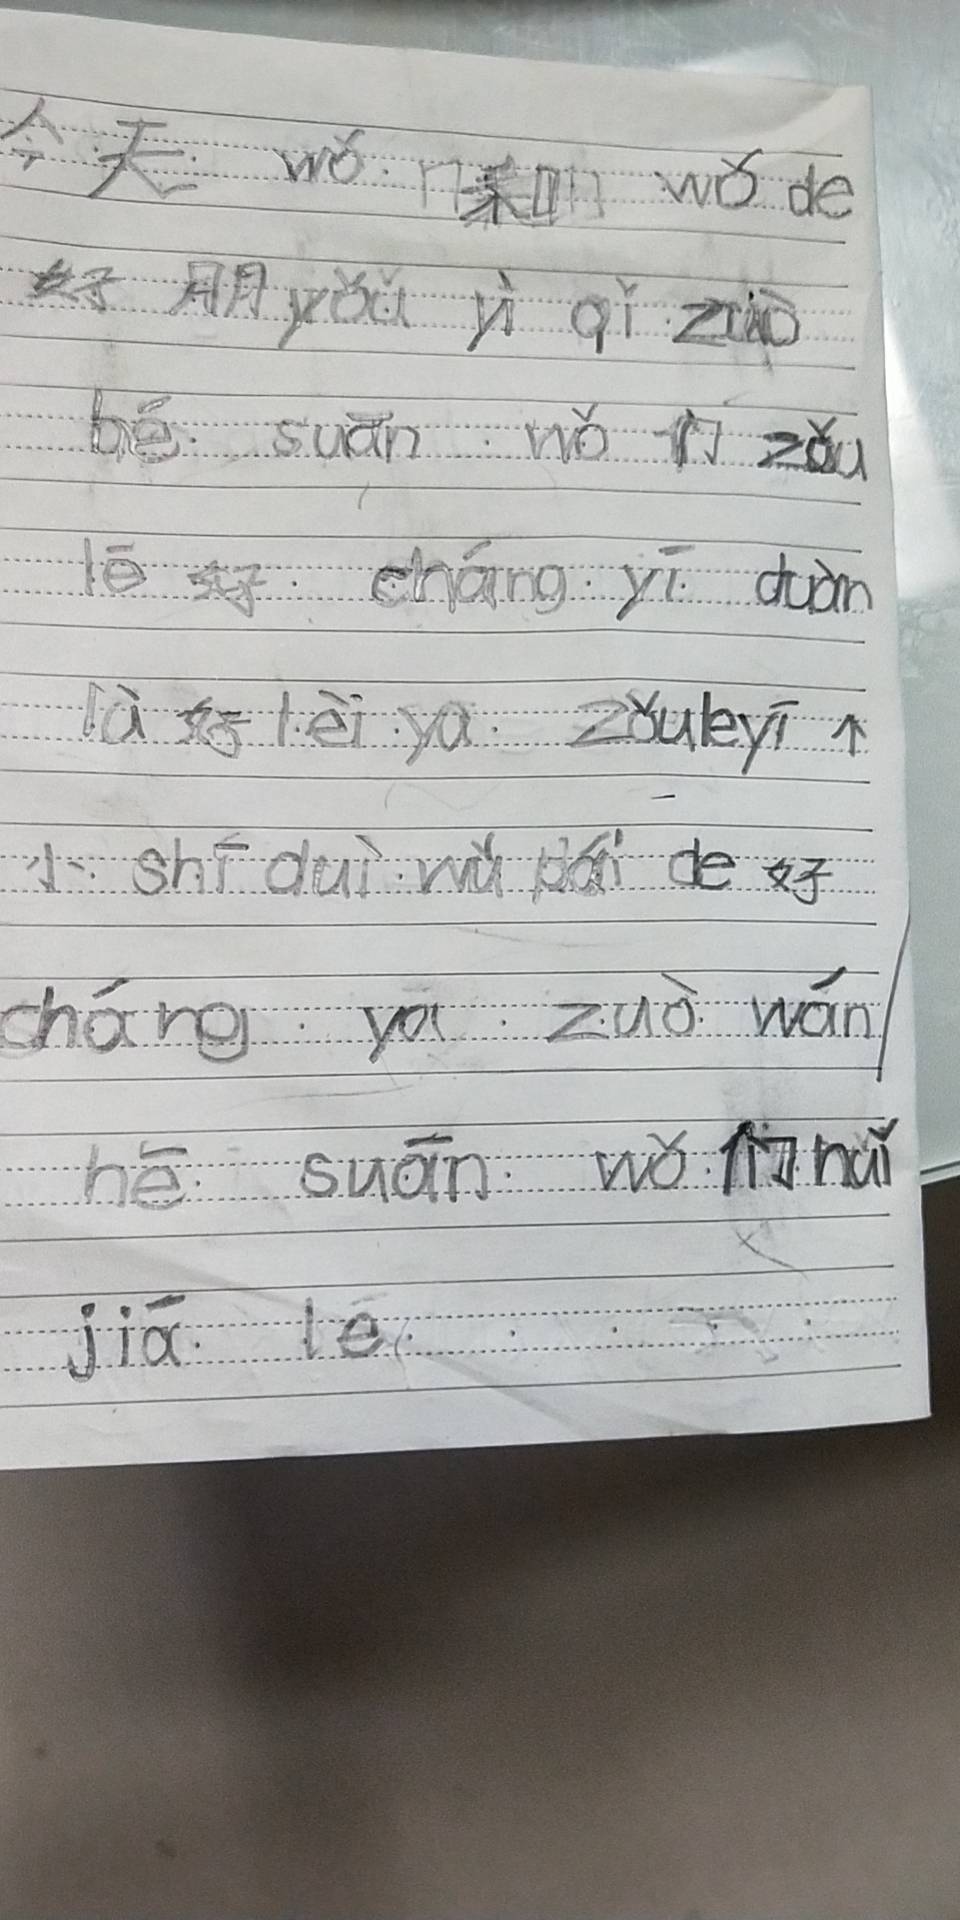 今天 wǒ 和 wǒ de
好 朋yǒu yì qǐ zuò
hé suān wǒ 们 zǒu
lē 好 cháng yī duàn
lù 好 lèi ya zǒuleyī 个
小 shí duì wǔ pái de 好
cháng ya zuò wán
hē suān wǒ 们 huí
jiā le